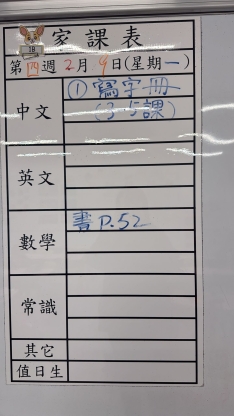 1B
家課表
第四週2月9日(星期一)
中文
①寫字冊
(3-5課)
英文
數學
書P.52
常識
其它
值日生